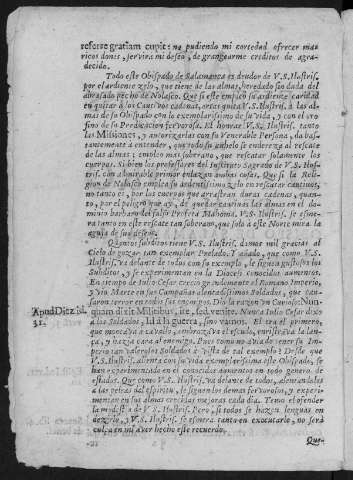 referre gratiam cupit: no pudiendo mi cortedad ofrecer mas
ricos dones, servira mi deseo, de grangearme creditos de agra-
decido.
Todo este Obispado de Salamanca es deudor de V.S. Ilustris.
por el ardiente zelo, que tiene de las almas, heredado sin duda del
abrasado pecho de Nolasco. Que si este empleó su ardiente caridad
en quitar à los Cautivos cadenas, otras quita V.S. Ilustris. à las al-
mas de su Obispado con lo exemplarissimo de su vida, y con el tro-
no de su Predicacion fervorosa. El honrar V.S. Ilustris. tanto
las Missiones, y autorizarlas con su Venerable Persona, dà bas-
tantemente à entender, que todo su anhelo se endereza al rescate
de las almas; empleo mas soberano, que rescatar solamente los
cuerpos. Si bien los professores del Instituto Sagrado de V.S. Ilus-
tris. con admirable primor enlazan ambas cosas. Que si la Reli-
gion de Nolasco emplea su ardentissimo zelo en rescatar cautivos,
no tanto es, por los cuerpos que arrastran duras cadenas, quan-
to, por el peligro que ay, de quedar cautivas las almas en el do-
minio barbaro del falso Profeta Mahoma. V.S. Ilustris. se esme-
ra tanto en este rescate tan soberano, que solo à este Norte mira la
aguja de sus deseos.
Quantos subditos tiene V.S. Ilustris. damos mil gracias al
Cielo de gozar tan exemplar Prelado. Y añado, que como V.S.
Ilustris. và delante de todos con su exemplo, le siguen gustosos los
Subditos, y se experimentan en la Diocesi conocidos aumentos.
En tiempo de Iulio Cesar creciò grandemente el Romano Imperio,
y viò Marte en sus Campañas alentadissimos Soldados, que cau-
saron terror en todos sus enemigos. Diò la razon un Curioso: Nun-
Apud Diez id. quam dixit Militibus, ite, sed venite. Nunca Iulio Cesar dixo
31. à los Soldados, Id à la guerra, sino vamos. El era el primero,
que montava à cavallo, embrazava el escudo, enristrava la lan-
ça, y hazia cara al enemigo. Pues como no avia de tener su Im-
perio tan valerosos Soldados à vista de tal exemplo? Desde que
V.S. Ilustris. alienta con su vida exemplarissima este Obispado, se
han experimentado en èl conocidos aumentos en todo genero de
estados. Que como V.S. Ilustris. và delante de todos, alentandolos
à las cosas del espiritu, le siguen los demàs fervorosos, y experi-
mentan en sus almas crecidas mejoras cada dia. Temo el ofender
la modestia de V.S. Ilustris. Pero, si todos se hazen lenguas en
dezirlo, y V.S. Ilustris. se esmera tanto en executarlo, no serà
culpa en mì aver hecho este recuerdo.
Que-